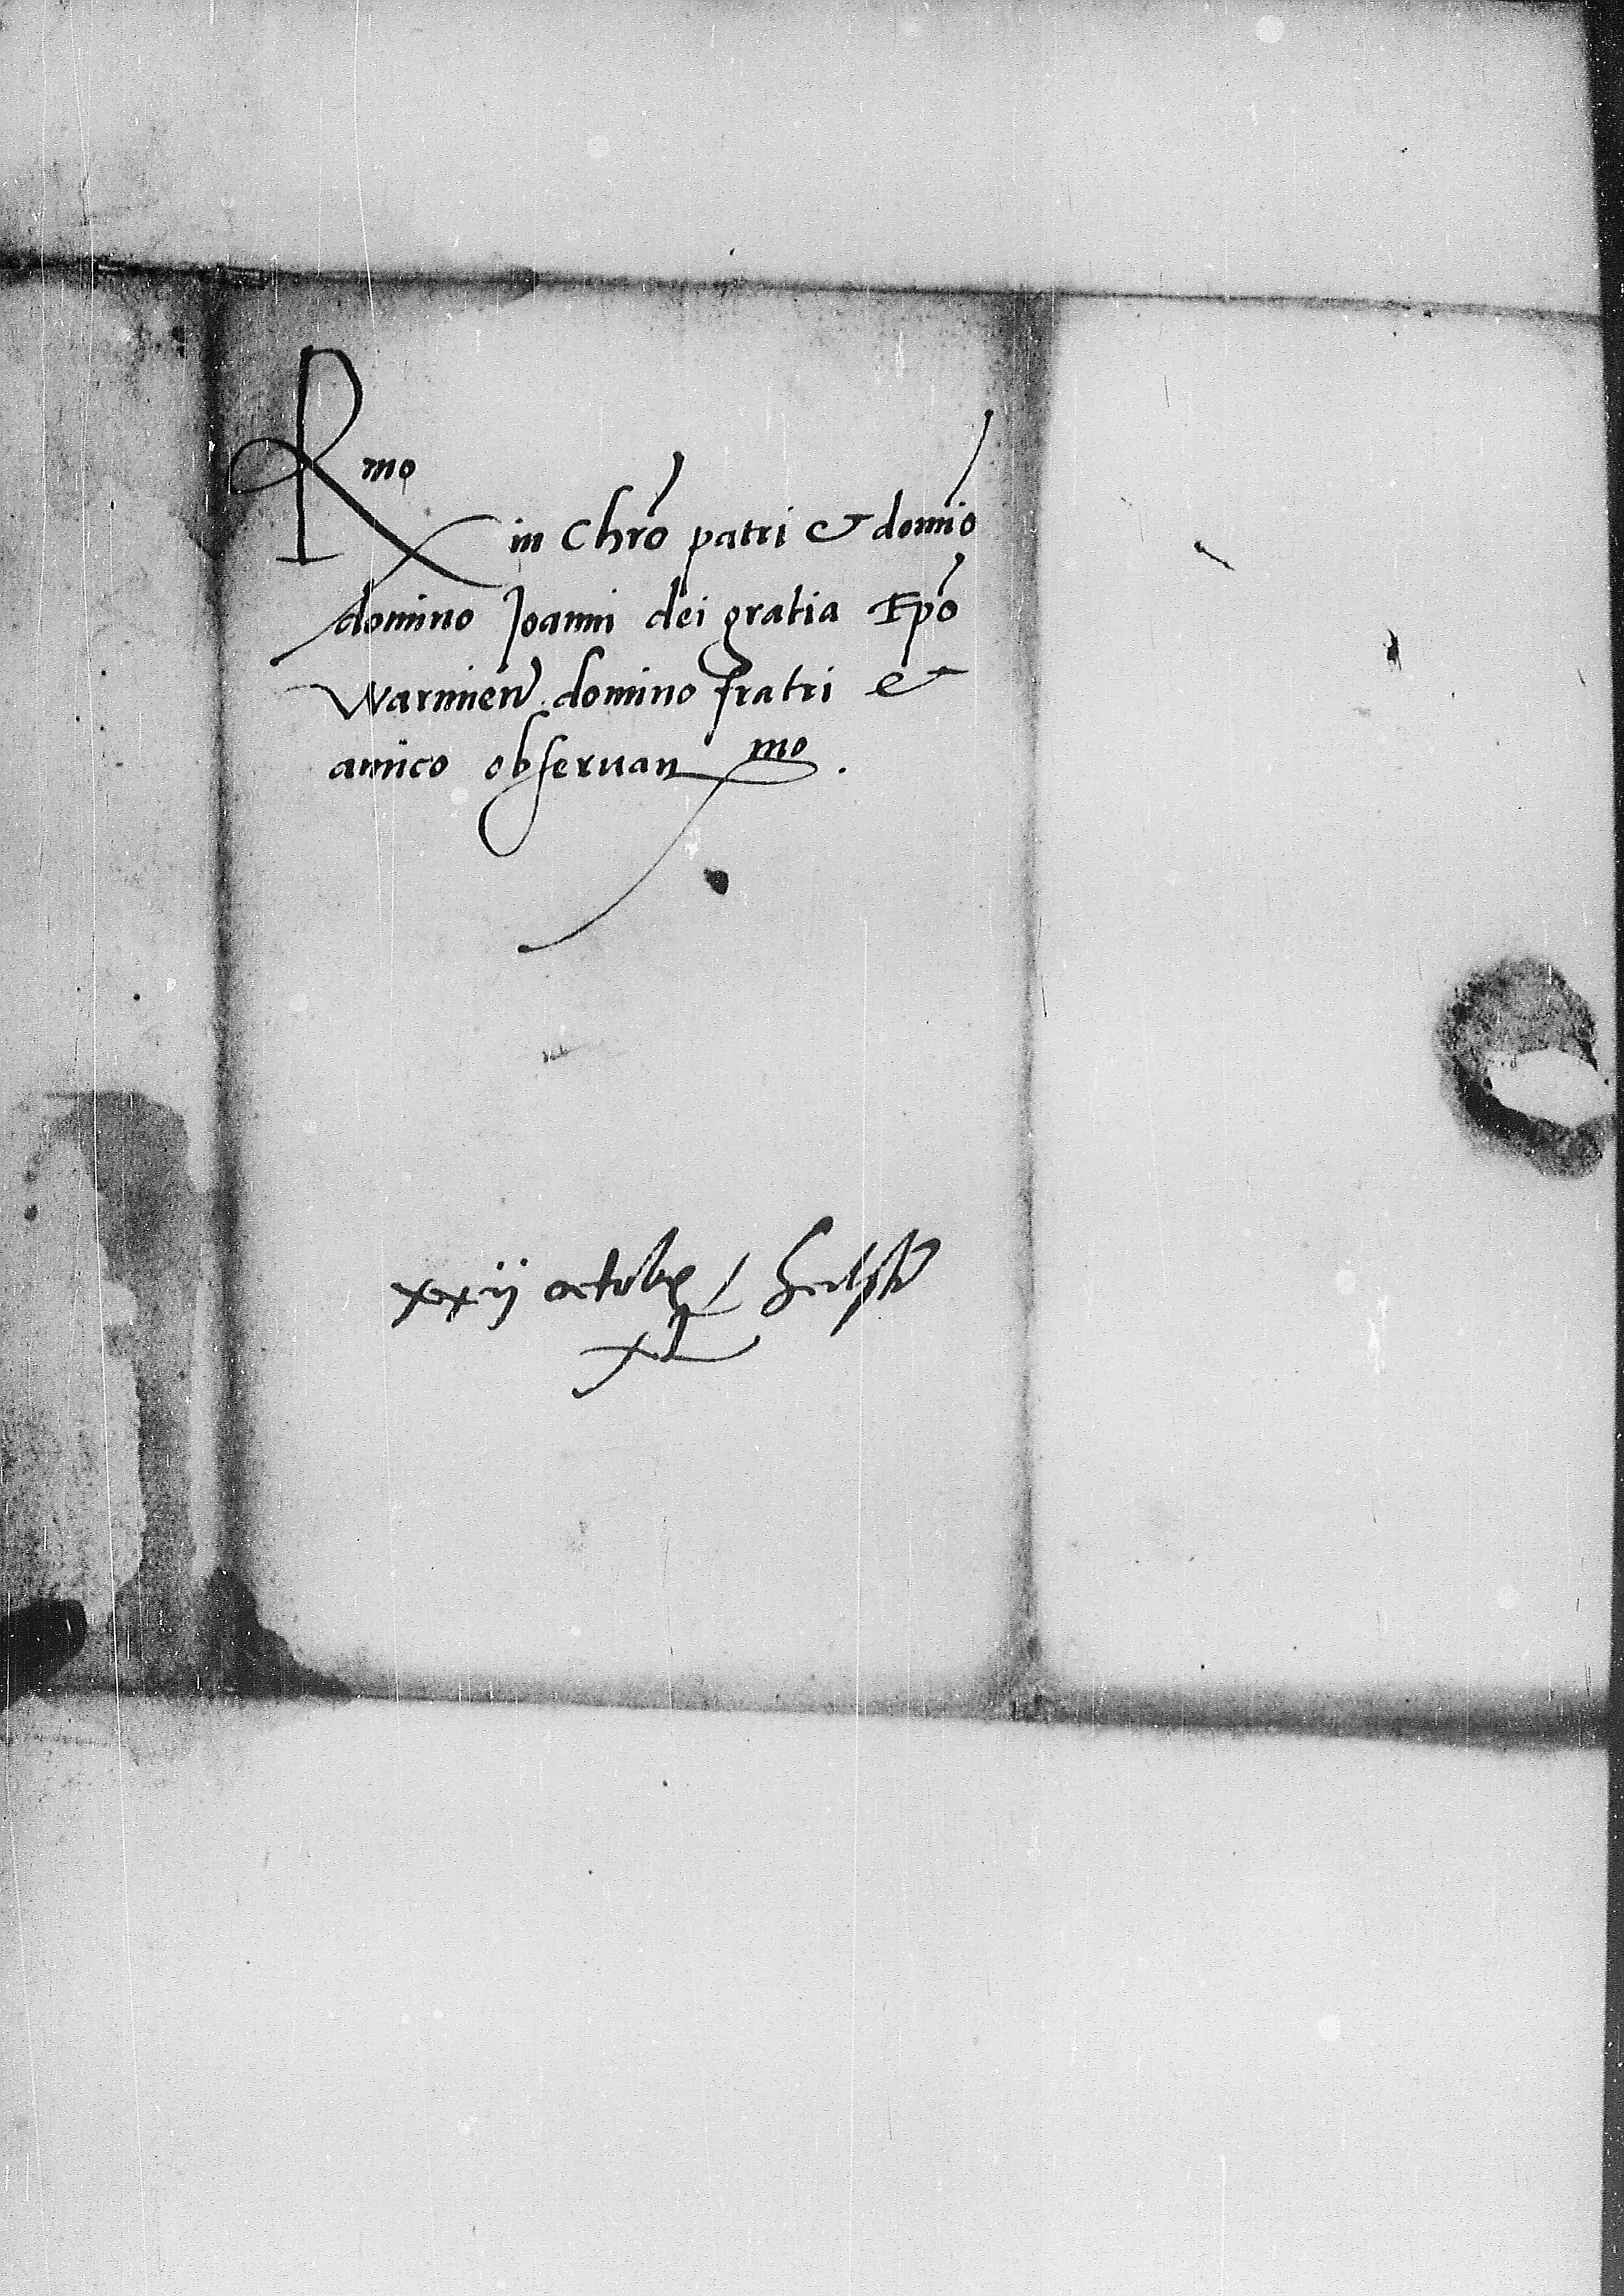 Rmo
in Chro patri & domio
domino Joanni dei gratia Epo
Warmien domino fratri &
amico obseruan mo.
xxij octobr /
xl